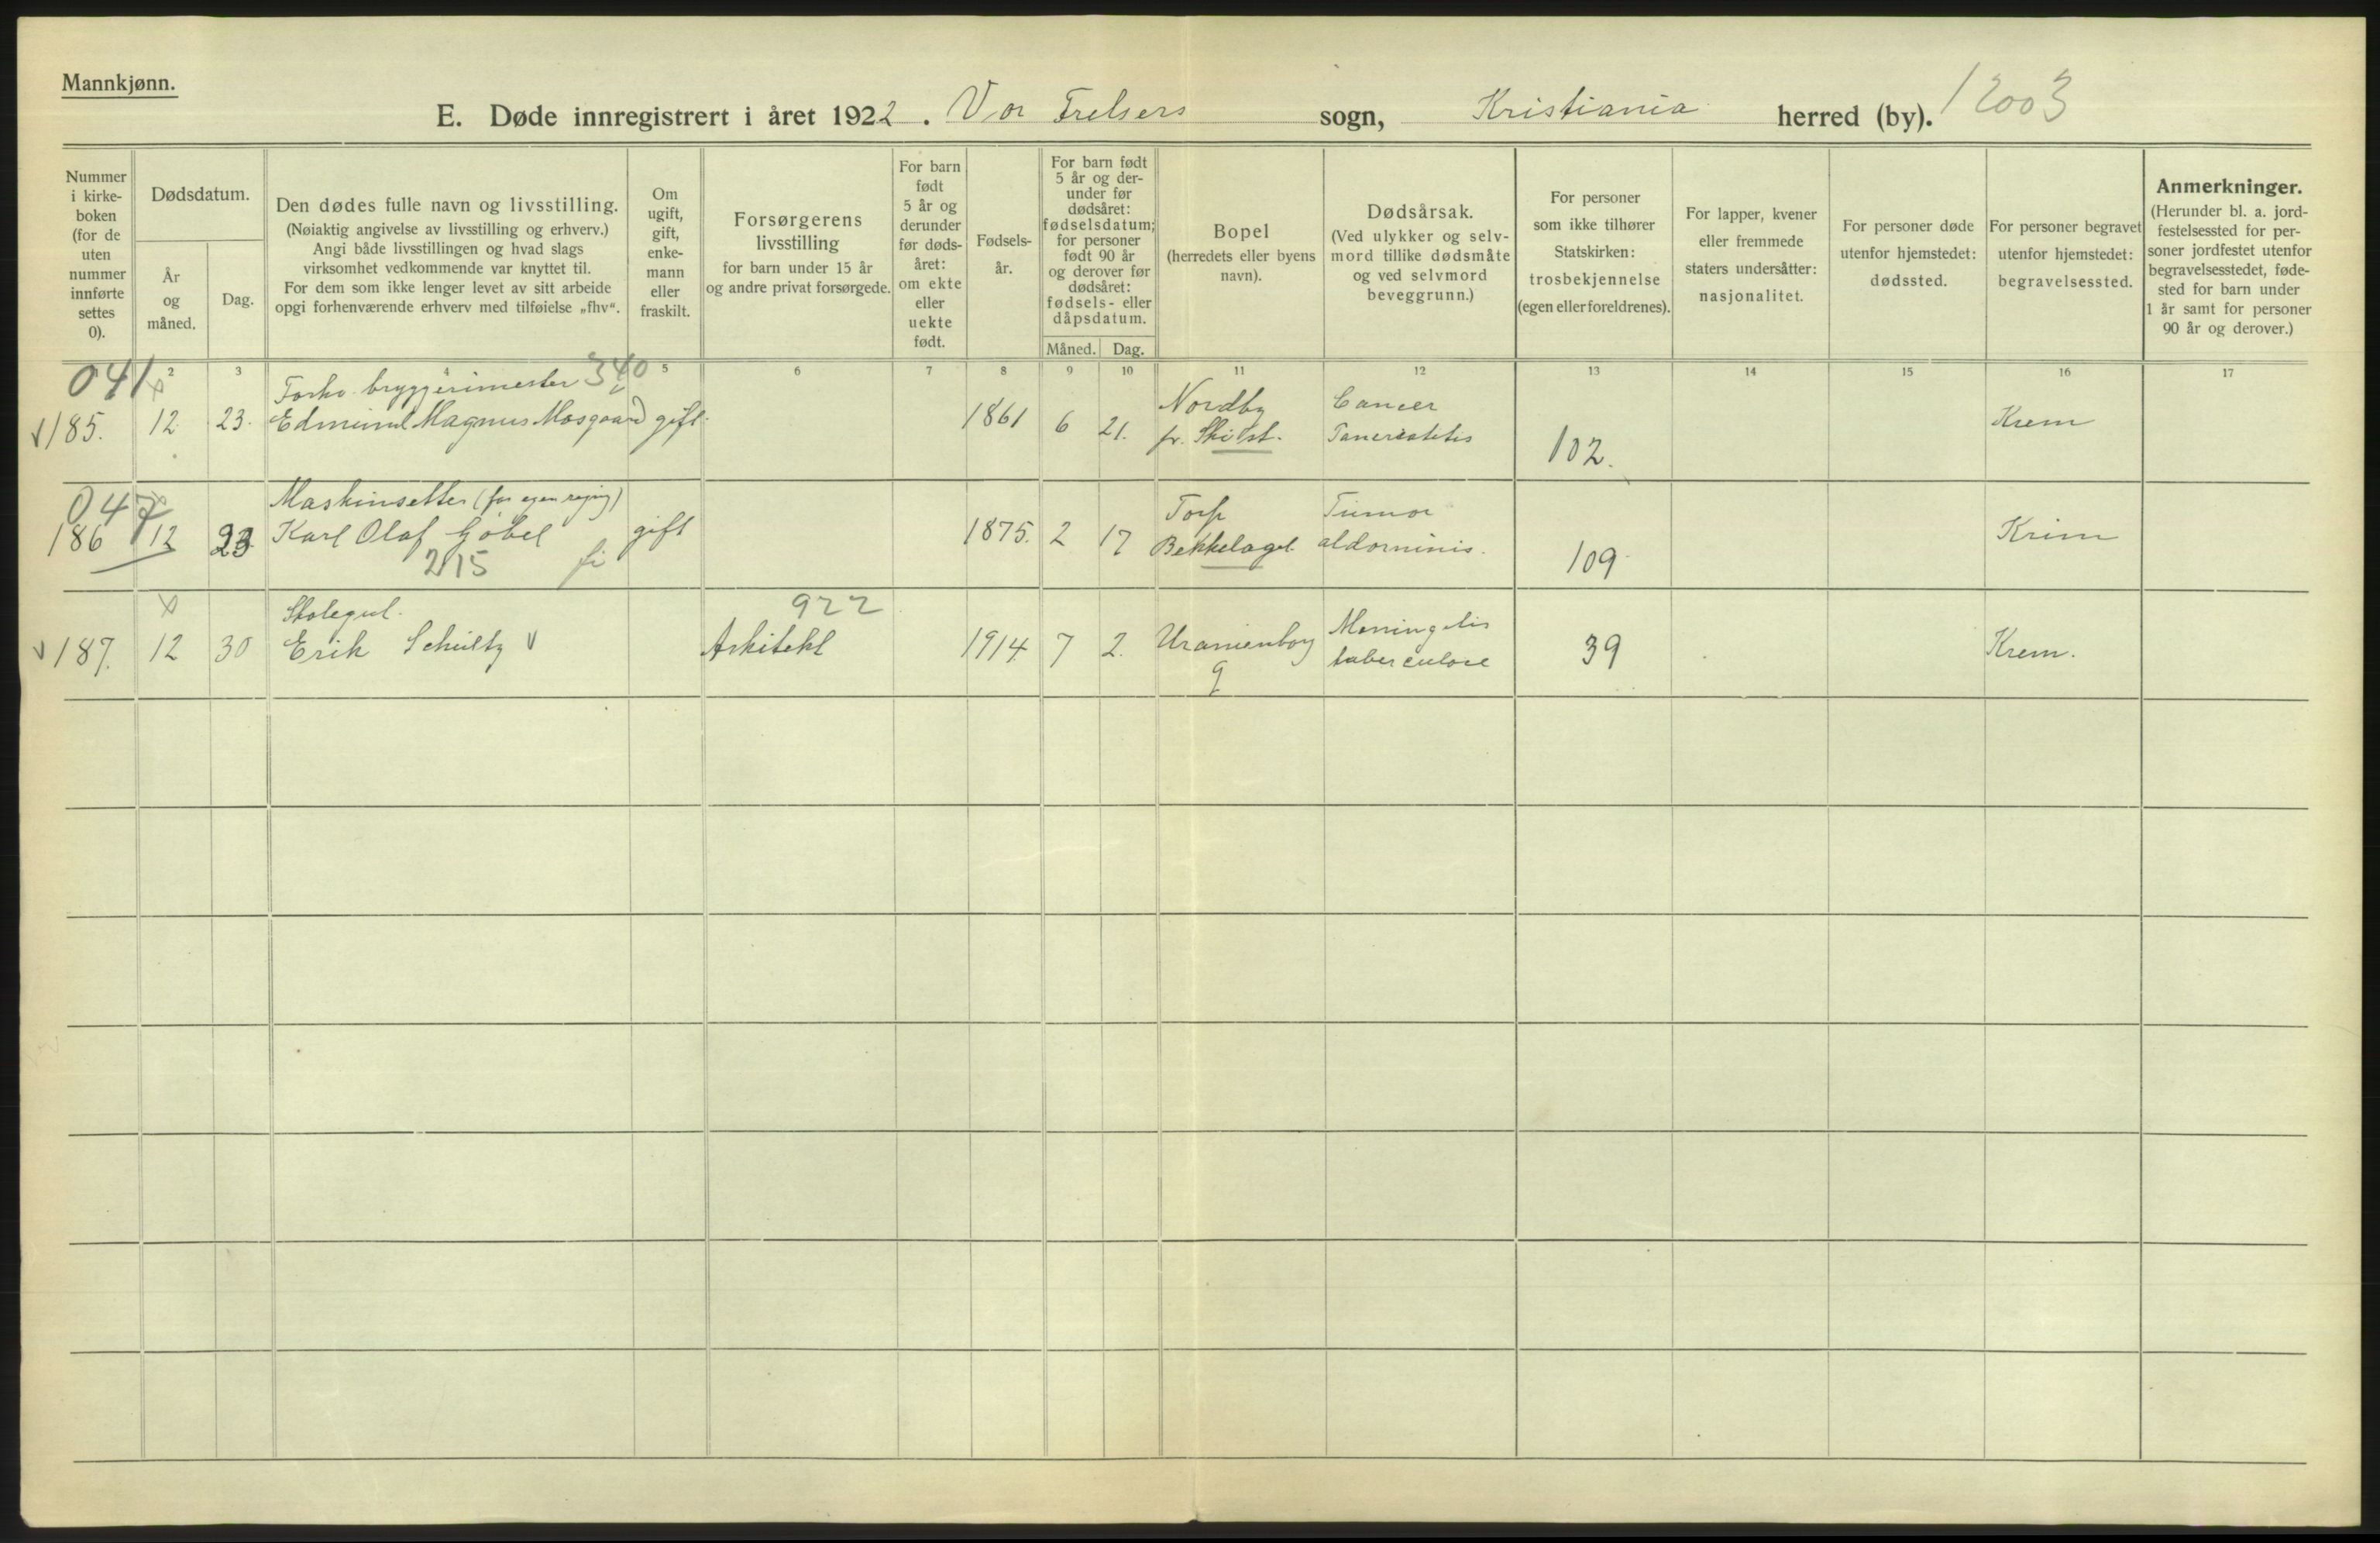 Mannkjønn.
E. Døde innregistrert i året 1922. Vor Frelsers sogn, Kristiania herred (by). 12003
Nummer i kirke- boken (for de uten nummer innførte settes 0).
Dødsdatum.
År og måned.
Dag.
Den dødes fulle navn og livsstilling.
(Nøiaktig angivelse av livsstilling og erhverv.)
Angi både livsstillingen og hvad slags
virksomhet vedkommende var knyttet til.
For dem som ikke lenger levet av sitt arbeide
opgi forhenværende erhverv med tilføielse „fhv“.
Om ugift, gift, enke- mann eller fraskilt.
Forsørgerens
livsstilling
for barn under 15 år
og andre privat forsørgede.
For barn født 5 år og derunder før døds- året: om ekte eller uekte født.
Fødsels- år.
For barn født 5 år og der- under før dødsåret: fødselsdatum; for personer født 90 år og derover før dødsåret: fødsels- eller dåpsdatum.
Måned. Dag.
Bopel
(herredets eller byens
navn).
Dødsårsak.
(Ved ulykker og selv-
mord tillike dødsmåte
og ved selvmord
beveggrunn.)
For personer
som ikke tilhører
Statskirken:
trosbekjennelse
(egen eller foreldrenes).
For lapper, kvener
eller fremmede
staters undersåtter:
nasjonalitet.
For personer døde
utenfor hjemstedet:
dødssted.
For personer begravet
utenfor hjemstedet:
begravelsessted.
Anmerkninger.
(Herunder bl. a. jord-
festelsessted for per-
soner jordfestet utenfor
begravelsesstedet, føde-
sted for barn under
1 år samt for personer
90 år og derover.)
2 3 4 5 6 7 8 9 10 11 12 13 14 15 16 17
041 x Forhv. bryggerimester 340 Nordby Cancer
v 185. 12 23. Edmund Magnus Mosgaard gift. 1861 6 21. pr. Ski st. Pancreatitis 102. Krem
047 x Maskinsetter (for egen regnig) Torp Tumor
186 12 23. Karl Olaf Gobel gift 1875. 2 17 Bekkelaget. abdominis. 109 Krim
215 fi
x Skolegut. 922 Meningitis
v 187. 12 30 Erik Schultz v Arkitekt 1914 7 2. Uranienborg tuberculose 39 Krem.
9